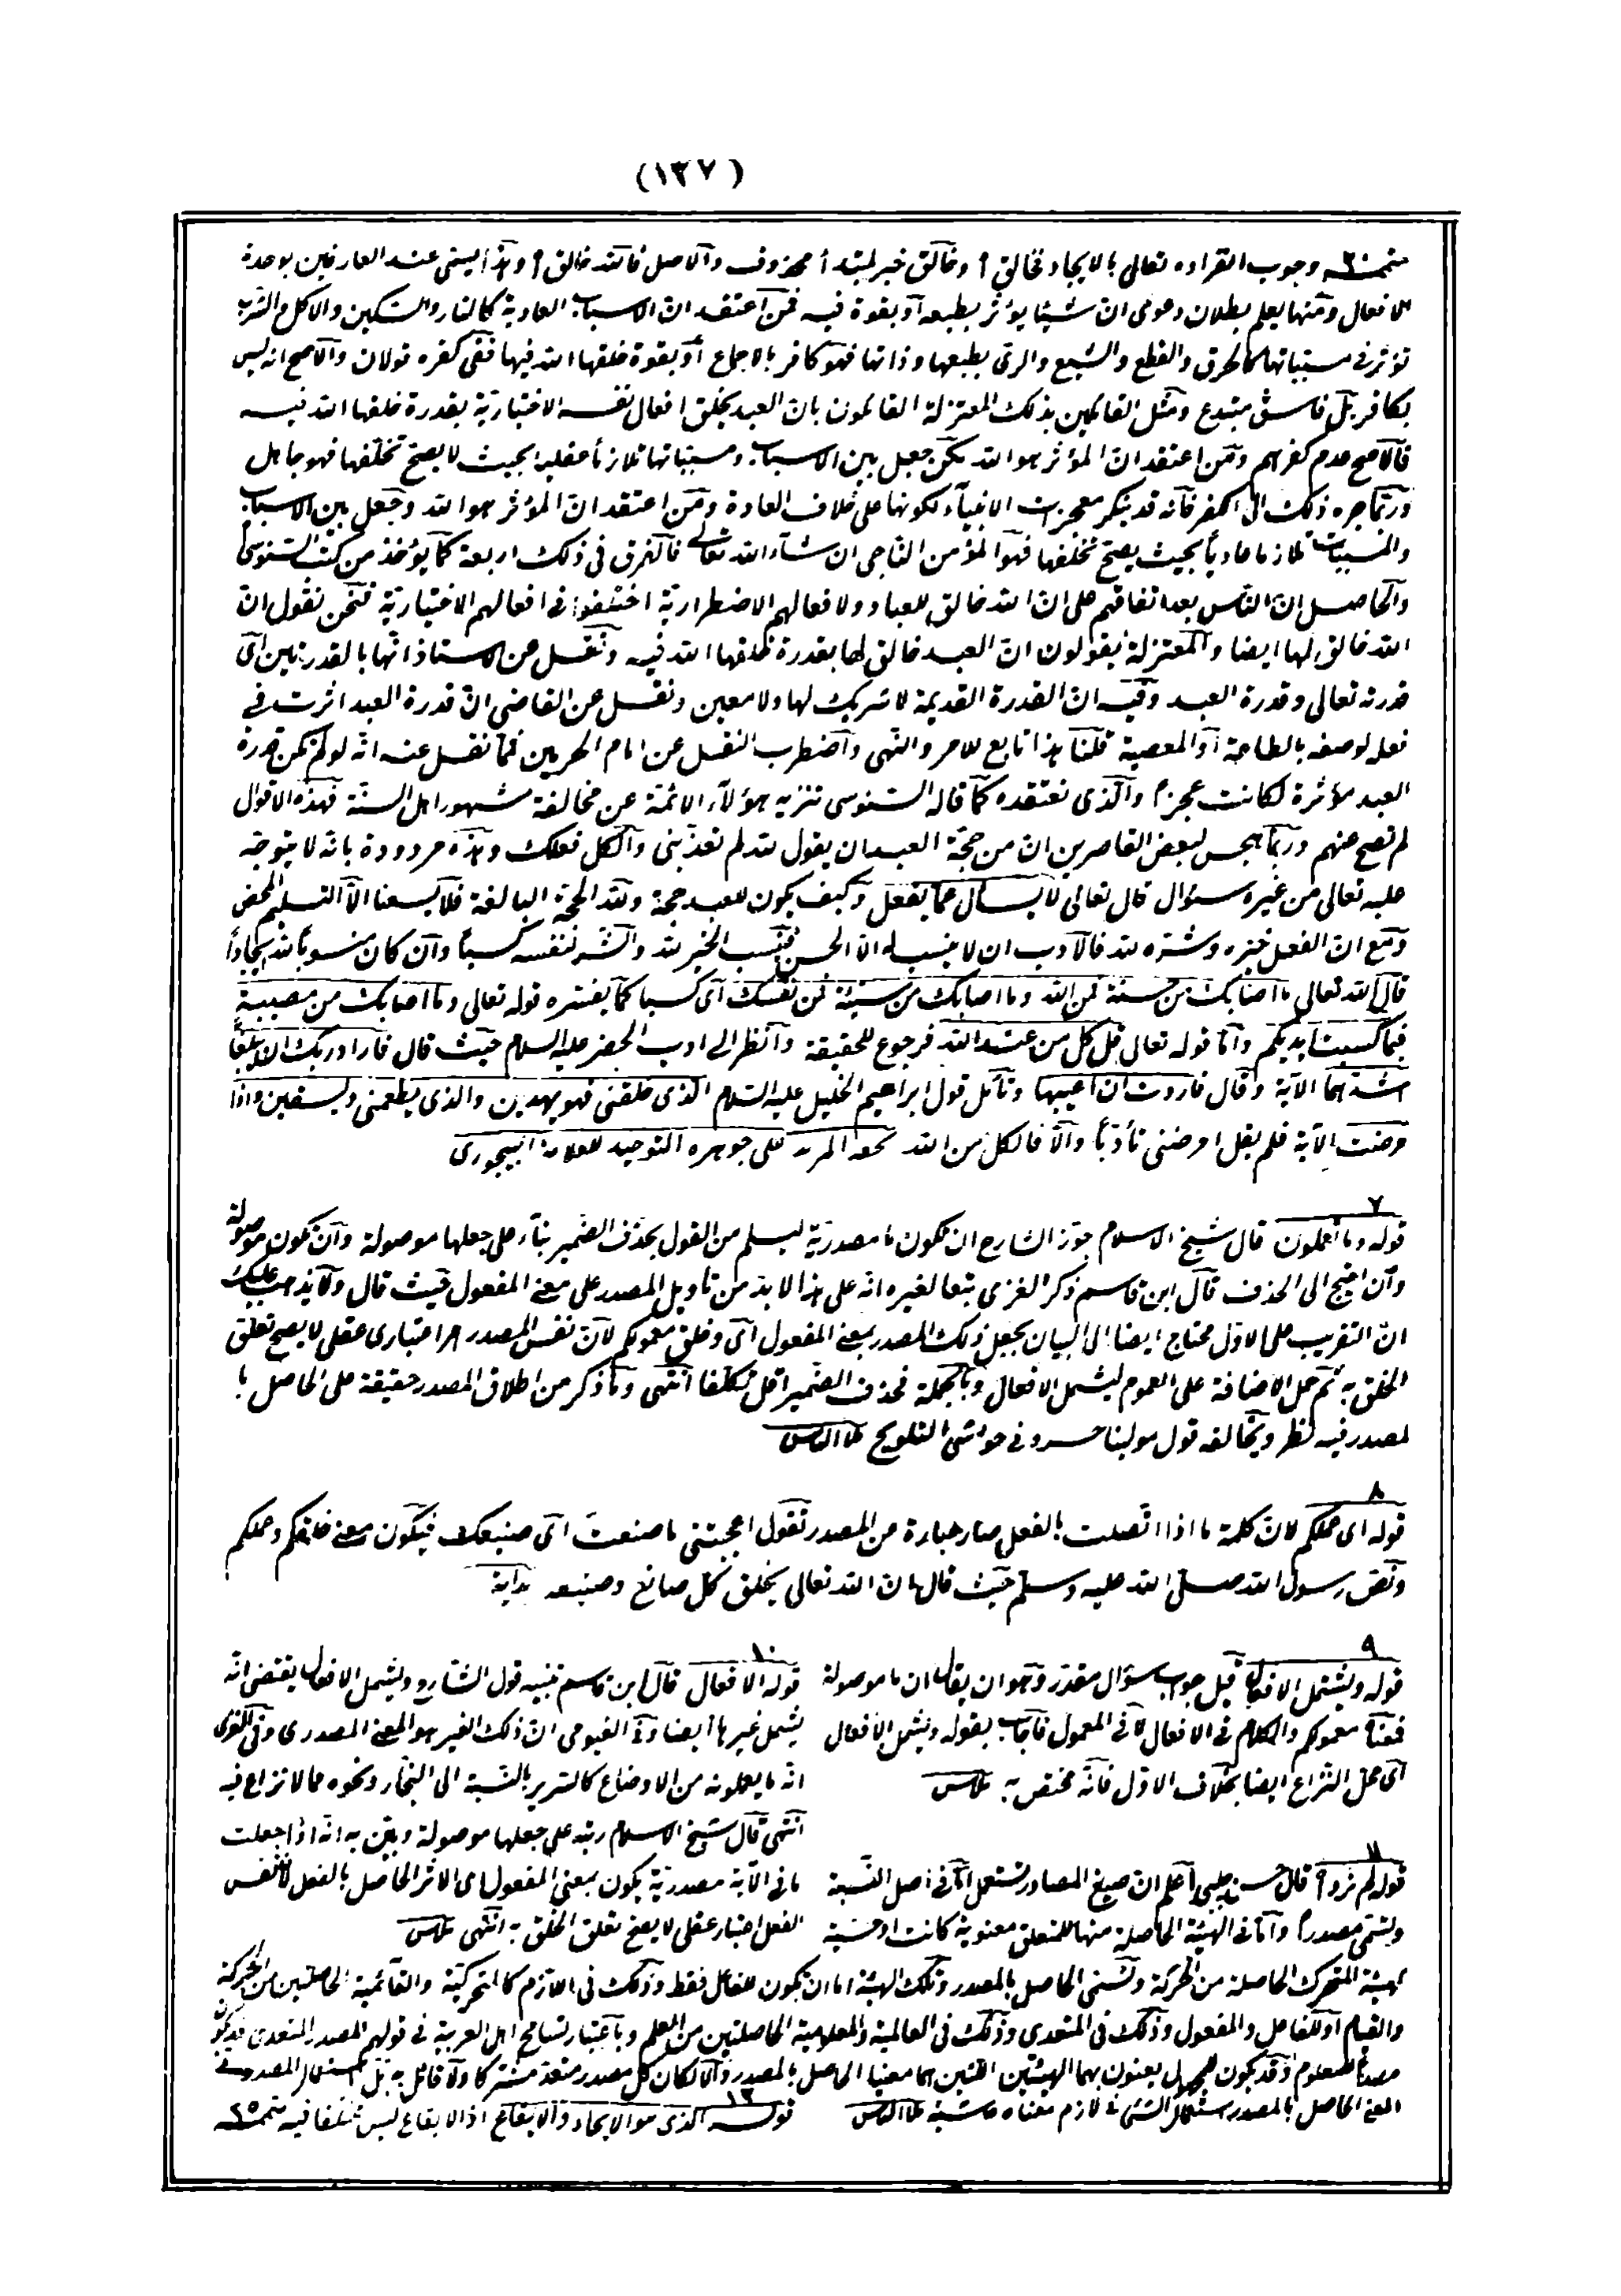 (١٣٧)
وجوب انفراده تعالى بالايجاد فخالق أ وخالق خبر لمبتدأ محذوف والاصل فالله خالق أ وهذا يسمى عند العارفين بوحدة
الافعال ومنها يعلم بطلان دعوى ان شيئا يؤثر بطبعه أو بقوة فيه فمن اعتقد ان الاسباب العادية كالنار والسكين والاكل والشرب
تؤثر في مسبباتها كالحرق والقطع والشبع والرى بطبعها وذاتها فهو كافر بالاجماع أو بقوة خلقها الله فيها ففى كفره قولان والاصح انه ليس
بكافر بل فاسق مبتدع ومثل القائلين بذلك المعتزلة القائلون بان العبد يخلق افعال نفسه الاختيارية بقدرة خلقها الله فيه
فالاصح عدم كفرهم ومن اعتقد ان المؤثر هو الله لكن جعل بين الاسباب ومسبباتها تلازما عقليا بحيث لا يصح تخلفها فهو جاهل
وربما جره ذلك الى الكفر فانه قد ينكر معجزات الانبياء لكونها على خلاف العادة ومن اعتقد ان المؤثر هو الله وجعل بين الاسباب
والمسببات تلازما عاديا بحيث يصح تخلفها فهو المؤمن الناجى ان شاء الله تعالى فالفرق فى ذلك اربعة كما يؤخذ من كتب السنوسى
والحاصل ان الناس بعد اتفاقهم على ان الله خالق للعباد ولافعالهم الاضطرارية اختلفوا فى افعالهم الاختيارية فنحن نقول ان
الله خالق لها ايضا والمعتزلة يقولون ان العبد خالق لها بقدرة خلقها الله فيه ونقل عن الاستاذ انها بالقدرتين اى
قدرته تعالى وقدرة العبد وفيه ان القدرة القديمة لا شريك لها ولا معين ونقل عن القاضى ان قدرة العبد اثرت فى
فعله لوصفه بالطاعة أو المعصية قلنا هذا تابع للامر والنهى واضطرب النقل عن امام الحرمين فمما نقل عنه انه لو لم تكن قدرة
العبد مؤثرة لكانت عجزا والذى نعتقده كما قاله السنوسى تنزيه هؤلاء الائمة عن مخالفة مشهور اهل السنة فهذه الاقوال
لم تصح عنهم وربما يهجس لبعض القاصرين ان من حجة العبد ان يقول لله لم تعذبنى والكل فعلك وهذه مردودة بانه لا يتوجه
عليه تعالى من غيره سؤال قال تعالى لا يسأل عما يفعل وكيف يكون للعبد حجة ولله الحجة البالغة فلا يسعنا الا التسليم المحض
ومع ان الفعل خيره وشره لله فالادب ان لا ينسب له الا الحسن فينسب الخير لله والشر لنفسه كسبا وان كان منسوبا لله ايجادا
قال الله تعالى ما اصابك من حسنة فمن الله وما اصابك من سيئة فمن نفسك اى كسبا كما يفسره قوله تعالى وما اصابك من مصيبة
فبما كسبت ايديكم واما قوله تعالى قل كل من عند الله فرجوع للحقيقة وانظر الى ادب الخضر عليه السلام حيث قال فاراد ربك ان يبلغا
اشدهما الآية وقال فاردت ان اعيبها وتأمل قول ابراهيم الخليل عليه السلام الذى خلقنى فهو يهدين والذى يطعمنى ويسقين واذا
مرضت الآية فلم يقل امرضنى تأدبا والا فالكل من الله تحفة المريد على جوهره التوحيد للعلامة البيجورى
٧
قوله وما تعملون قال شيخ الاسلام جوز الشارح ان تكون ما مصدرية ليسلم من القول بحذف الضمير بناء على جعلها موصولة وان تكون موصولة
وان احتيج الى الحذف قال ابن قاسم ذكر الغزى تبعا لغيره انه على هذا لا بد من تاويل المصدر على معنى المفعول حيث قال ولا يذهب عليك
ان التقريب على الاول محتاج ايضا الى البيان بجعل ذلك المصدر بمعنى المفعول اى وخلق معمولكم لان نفس المصدر امر اعتبارى عقلى لا يصح تعلق
الخلق به ثم حمل الاضافة على العموم ليشمل الافعال وبالجملة فحذف الضمير اقل تكلفا انتهى وما ذكر من اطلاق المصدر حقيقة على الحاصل با
لمصدر فيه نظر ويخالفه قول مولينا خسرو فى حواشى التلويح
٨
قوله اى عملكم لان كلمة ما اذا اتصلت بالفعل صار عبارة عن المصدر تقول اعجبتنى ما صنعت اى صنيعك فيكون معنى خلقكم وعملكم
ونص رسول الله صلى الله عليه وسلم حيث قال ان الله تعالى يخلق كل صانع وصنيعه بداية
٩
قوله ويشتمل الافعال قيل جواب سؤال مقدر وهو ان يقال ان ما موصولة
فمعناه معمولكم والكلام فى الافعال لا فى المعمول فاجاب بقوله ويشمل الافعال
اى محل النزاع ايضا بخلاف الاول فانه مختص به
١٠
قوله الافعال قال ابن قاسم تنبيه قول الشارح ويشمل الافعال يقتضى انه
يشمل غيرها ايضا وفى الفيومى ان ذلك الغير هو المعنى المصدرى وفى الغزى
انه ما يعملونه من الاوضاع كالسرير بالنسبة الى النجار ونحوه مما لا نزاع فيه
انتهى قال شيخ الاسلام رتبه على جعلها موصولة وبين به انه اذا جعلت
ما فى الآية مصدرية يكون بمعنى المفعول اى الاثر الحاصل بالفعل لا نفس
الفعل اعتبار عقلى لا يصح تعلق الخلق به انتهى
١١
قوله لم نرد أ قال حسن چلبى اعلم ان صيغ المصادر تستعمل اما فى اصل النسبة
ويسمى مصدرا واما فى الهيئة الحاصلة منها للمتعلق معنوية كانت او حسية
كهيئة المتحرك الحاصلة من الحركة وتسمى الحاصل بالمصدر وتلك الهيئة اما ان تكون للفاعل فقط وذلك فى اللازم كالمتحركية والقائمية الحاصلتين من الحركة
والقيام أو للفاعل والمفعول وذلك فى المتعدى وذلك فى العالمية والمعلومية الحاصلتين من العلم وباعتبار تسامح اهل العربية فى قولهم المصدر المتعدى قد يكون
مصدرا للمعلوم وقد يكون للمجهول يعنون بهما الهيئتين اللتين هما معنيا الحاصل بالمصدر والا لكان كل مصدر متعد مشتركا ولا قائل به بل استعمال المصدر فى
المعنى الحاصل بالمصدر استعمال الشئ فى لازم معناه حاشية
١٢
قوله الذى هو الايجاد والايقاع اذ الايقاع ليس مخلقا فيه